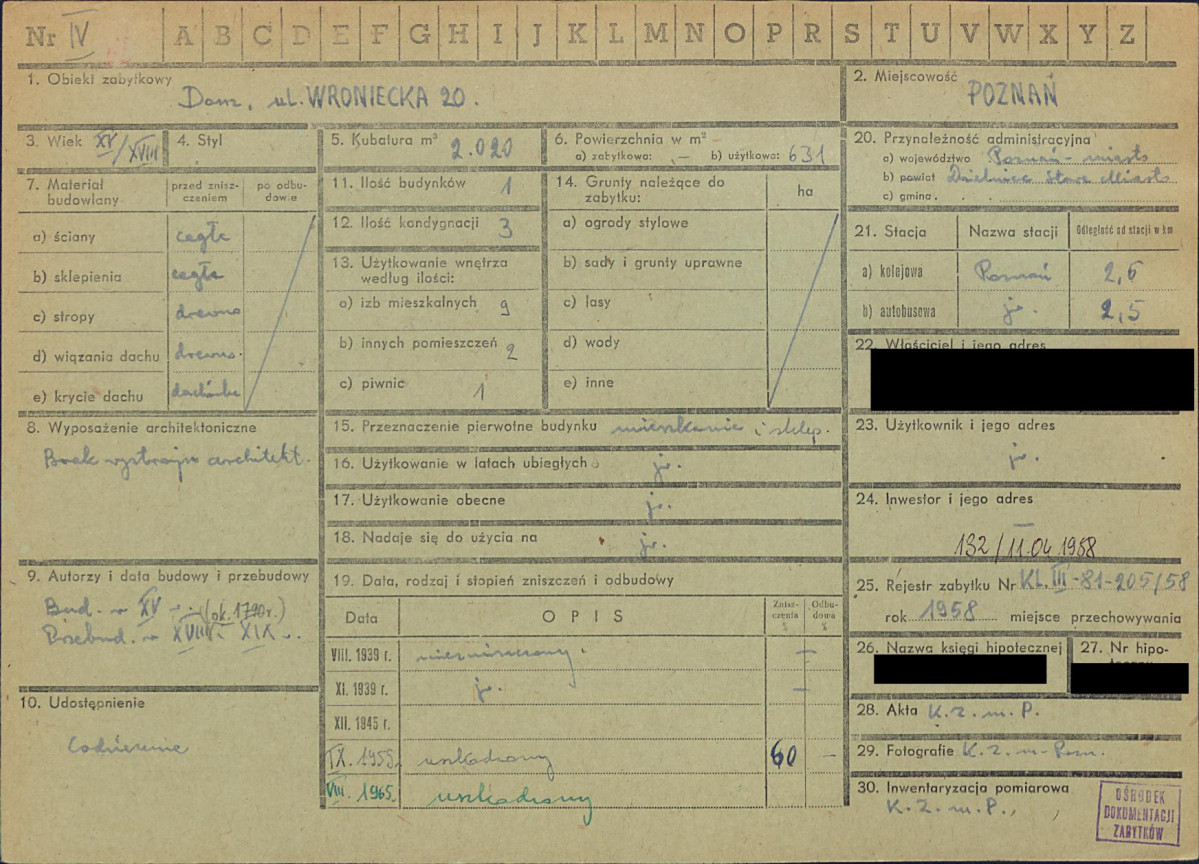 Nr IV A B C D E F G H I J K L M N O P R S T U V W X Y Z
1. Obiekt zabytkowy
Dom, ul. WRONIECKA 20.
2. Miejscowość
POZNAŃ
3. Wiek XV/XVIII
4. Styl
5. Kubatura m³ 2.020
6. Powierzchnia w m² –
a) zabytkowa: — b) użytkowa: 631
7. Materiał budowlany
przed zniszczeniem
po odbudowie
a) ściany cegła
b) sklepienia cegła
c) stropy drewno
d) wiązania dachu drewno.
e) krycie dachu dachówka
8. Wyposażenie architektoniczne
Brak wystroju architekt.
9. Autorzy i data budowy i przebudowy
Bud. w XV – (ok. 1790 r.)
Przebud. w XVIII i XIX w.
10. Udostępnienie
Codziennie
11. Ilość budynków 1
12. Ilość kondygnacji 3
13. Użytkowanie wnętrza według ilości:
a) izb mieszkalnych 9
b) innych pomieszczeń 2
c) piwnic 1
14. Grunty należące do zabytku:
ha
a) ogrody stylowe
b) sady i grunty uprawne
c) lasy
d) wody
e) inne
15. Przeznaczenie pierwotne budynku mieszkanie i sklep.
16. Użytkowanie w latach ubiegłych jw.
17. Użytkowanie obecne jw.
18. Nadaje się do użycia na jw.
19. Data, rodzaj i stopień zniszczeń i odbudowy
Data
OPIS
Zniszczenia %
Odbudowa %
VIII. 1939 r. niezniszczony. –
XI. 1939 r. jw. –
XII. 1945 r.
IX. 1955. uszkodzony 60 –
VIII. 1965. uszkodzony
20. Przynależność administracyjna
a) województwo Poznań – miasto
b) powiat Dzielnica Stare Miasto
c) gmina.
21. Stacja
Nazwa stacji
Odległość od stacji w km
a) kolejowa Poznań 2,6
b) autobusowa jw. 2,5
22. Właściciel i jego adres
23. Użytkownik i jego adres
jw.
24. Inwestor i jego adres
–
132/11.04 1958
25. Rejestr zabytku Nr KL. III-81-205/58
rok 1958 miejsce przechowywania
26. Nazwa księgi hipotecznej
27. Nr hipo-
28. Akta K. Z. m. P.
29. Fotografie K. Z. m. Pozn.
30. Inwentaryzacja pomiarowa
K. Z. m. P.,
OŚRODEK
DOKUMENTACJI
ZABYTKÓW